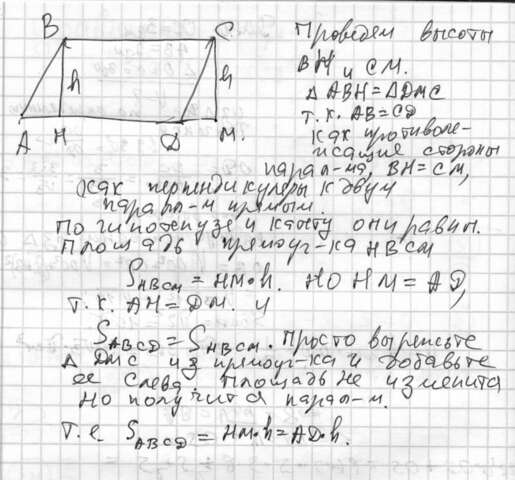 B C Проведем высоты
h h BH и CM.
A H D M. △ABH = △DMC
т.к. AB = CD
как противоле-
жащие стороны
парал-ма, BH = CM,
как перпендикуляры к двум
парал-м прямым.
По гипотенузе и катету они равны.
Площадь прямоуг-ка HBCM
S HBCM = HM·h. НО HM = AD,
т.к. AH = DM. и
S ABCD = S HBCM. Просто вырежьте
△ DMC из прямоуг-ка и добавьте
ее слева. Площадь не изменится
но получится парал-м.
т.е. S ABCD = HM·h = AD·h.